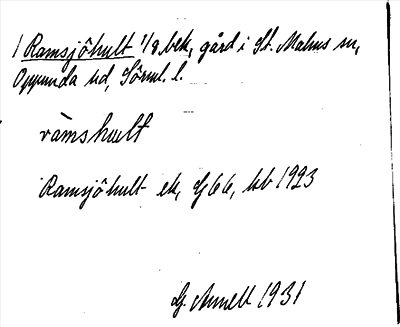 1 Ramsjöhult 1/8 bek, gård i St. Malms sn,
Oppunda hd, Sörml. l.
ràmshult
Ramsjöhult ek, G66, kb 1923
G. Annell 1931